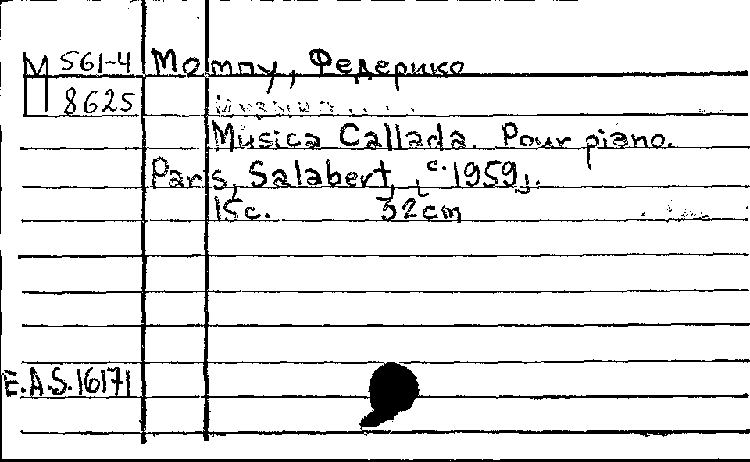 М 561-4 Момпу, Федерико
П 8625
Musica Callada. Pour piano.
Paris, Salabert, [c. 1959].
15c. 32cm
E.A.S.16171